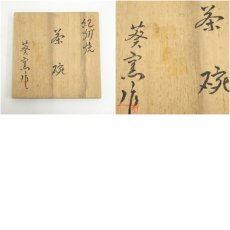 紀州焼
茶碗
葵窯作
茶碗
葵窯作